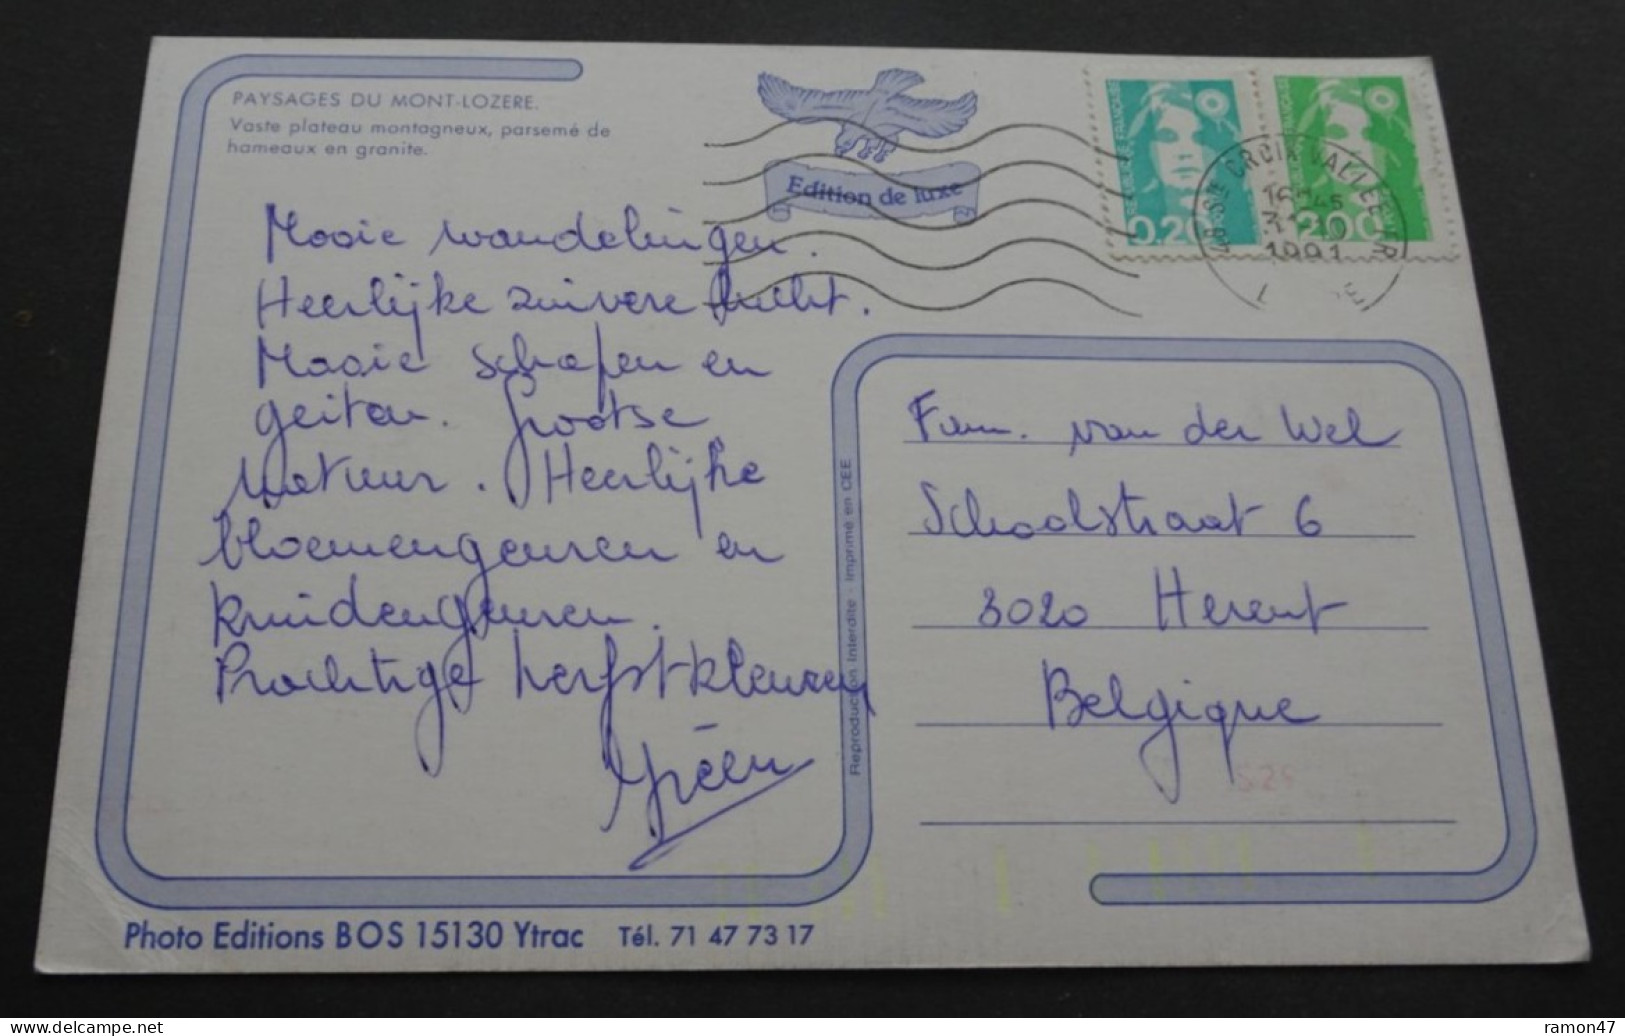 PAYSAGES DU MONT-LOZERE.
Vaste plateau montagneux, parsemé de
hameaux en granite.
Edition de luxe
REPUBLIQUE FRANÇAISE
0,20
2,00
48 Ste CROIX VALLEE FR
16H45
1991
Mooie wandelingen.
Heerlijke zuivere lucht.
Mooie schapen en
geiten. Grootse
natuur. Heerlijke
bloemengeuren en
kruidengeuren.
Prachtige herfstkleuren
Reproduction Interdite - Imprimé en CEE
Fam. van der Wel
Schoolstraat 6
3020 Herent
Belgique
Photo Editions BOS 15130 Ytrac Tél. 71 47 73 17
ramon47